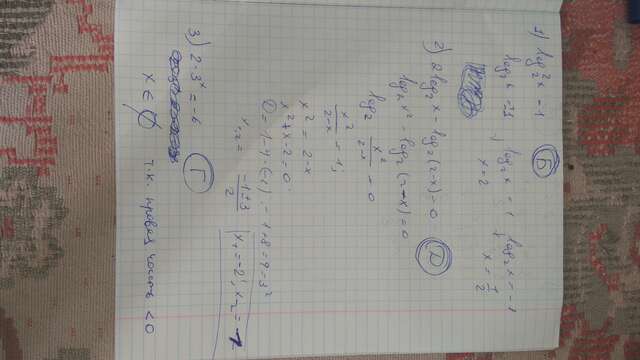 1) log₂²x = 1 Б
log₂x = ±1 ; log₂x = 1 ; log₂x = -1
x = 2 x = 1/2
2) 2log₂x - log₂(2-x) = 0 Д
log₂x² - log₂(2-x) = 0
log₂ x²/(2-x) = 0
x²/(2-x) = 1;
x² = 2-x
x² + x - 2 = 0.
D = 1 - 4·(-2) = 1 + 8 = 9 = 3²
x₁,₂ = (-1±3)/2 x₁ = -2; x₂ = 1
3) 2·3ˣ = -6 Г
x ∈ ∅ т.к. правая часть < 0